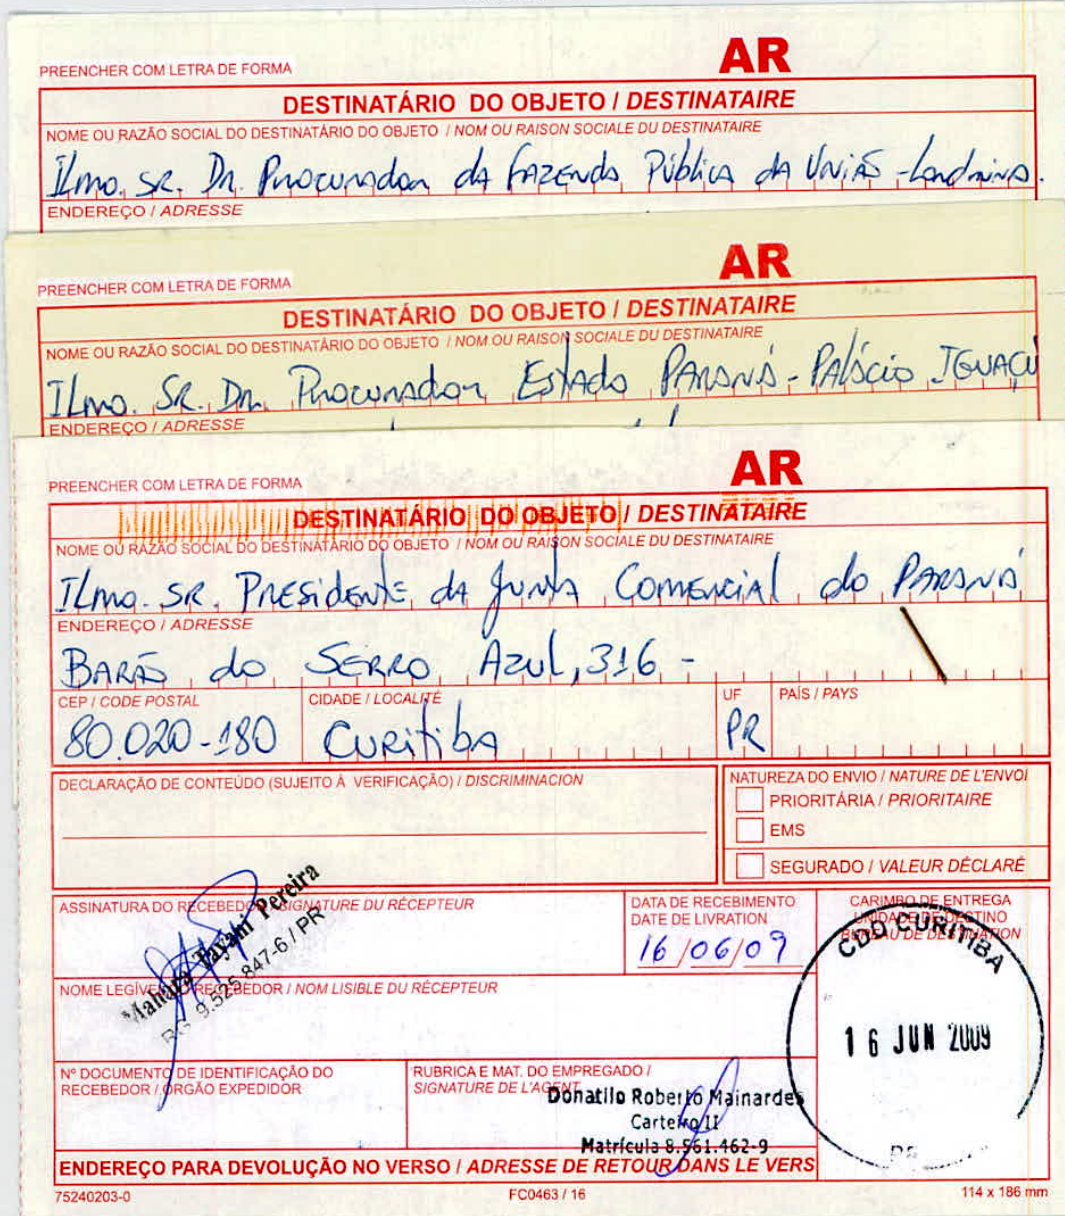 AR
PREENCHER COM LETRA DE FORMA
DESTINATÁRIO DO OBJETO / DESTINATAIRE
NOME OU RAZÃO SOCIAL DO DESTINATÁRIO DO OBJETO / NOM OU RAISON SOCIALE DU DESTINATAIRE
Ilmo. SR. Dr. Procurador da Fazenda Pública da União - Londrina.
ENDEREÇO / ADRESSE
AR
PREENCHER COM LETRA DE FORMA
DESTINATÁRIO DO OBJETO / DESTINATAIRE
NOME OU RAZÃO SOCIAL DO DESTINATÁRIO DO OBJETO / NOM OU RAISON SOCIALE DU DESTINATAIRE
Ilmo. SR. Dr. Procurador Estado Paraná - Palácio Iguaçu
ENDEREÇO / ADRESSE
AR
PREENCHER COM LETRA DE FORMA
DESTINATÁRIO DO OBJETO / DESTINATAIRE
NOME OU RAZÃO SOCIAL DO DESTINATÁRIO DO OBJETO / NOM OU RAISON SOCIALE DU DESTINATAIRE
Ilmo. SR. Presidente da Junta Comercial do Paraná
ENDEREÇO / ADRESSE
Barão do Serro Azul, 316 -
CEP / CODE POSTAL CIDADE / LOCALITÉ UF PAÍS / PAYS
80.020-180 Curitiba PR
DECLARAÇÃO DE CONTEÚDO (SUJEITO À VERIFICAÇÃO) / DISCRIMINACION
NATUREZA DO ENVIO / NATURE DE L'ENVOI
PRIORITÁRIA / PRIORITAIRE
EMS
SEGURADO / VALEUR DÉCLARÉ
ASSINATURA DO RECEBEDOR / SIGNATURE DU RÉCEPTEUR
Tayani Pereira
RG 9.525.847-6 / PR
DATA DE RECEBIMENTO
DATE DE LIVRATION
16/06/09
CARIMBO DE ENTREGA
UNIDADE DE DESTINO
BUREAU DE DESTINATION
CDD CURITIBA
16 JUN 2009
NOME LEGÍVEL DO RECEBEDOR / NOM LISIBLE DU RÉCEPTEUR
Nº DOCUMENTO DE IDENTIFICAÇÃO DO
RECEBEDOR / ÓRGÃO EXPEDIDOR
RUBRICA E MAT. DO EMPREGADO /
SIGNATURE DE L'AGENT
Donatilo Roberto Mainardes
Carteiro II
Matrícula 8.561.462-9
ENDEREÇO PARA DEVOLUÇÃO NO VERSO / ADRESSE DE RETOUR DANS LE VERS
75240203-0 FC0463 / 16 114 x 186 mm